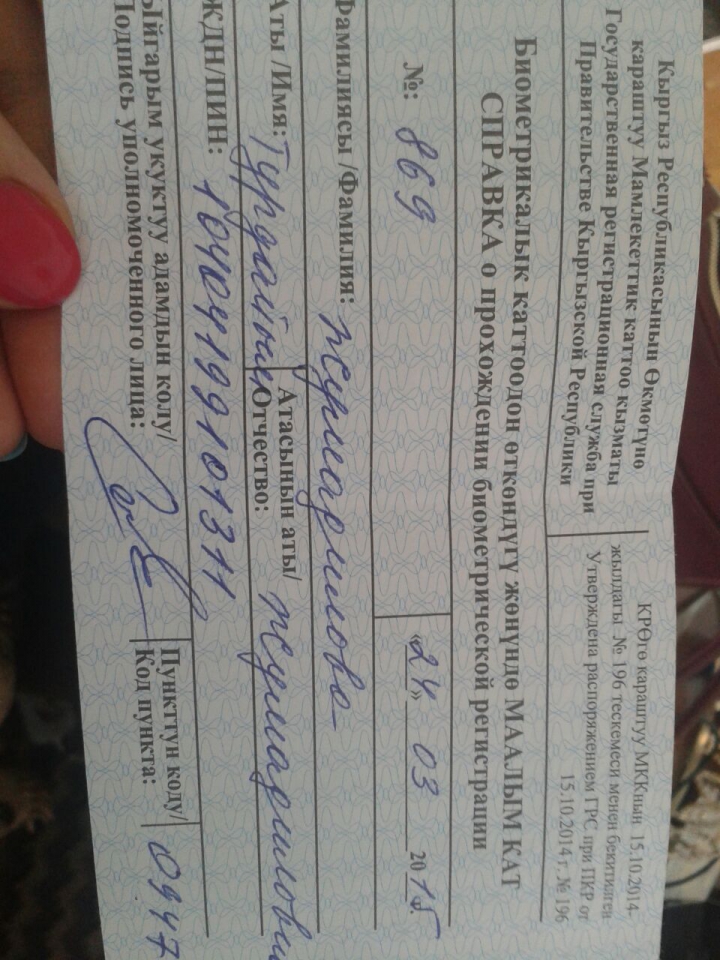 Кыргыз Республикасынын Өкмөтүнө
караштуу Мамлекеттик каттоо кызматы
Государственная регистрационная служба при
Правительстве Кыргызской Республики
КРӨгө караштуу МККнын 15.10.2014-
жылдагы № 196 тескемеси менен бекитилген
Утверждена распоряжением ГРС при ПКР от
15.10.2014 г, № 196
Биометрикалык каттоодон өткөндүгү жөнүндө МААЛЫМ КАТ
СПРАВКА о прохождении биометрической регистрации
№: 869 «24» 03 2015
Фамилиясы /Фамилия:
Аты /Имя: Атасынын аты/
Отчество:
ЖДН/ПИН: 10404199101311
ыйгарым укуктуу адамдын колу/
Подпись уполномоченного лица:
Пункттун коду/
Код пункта: 0947